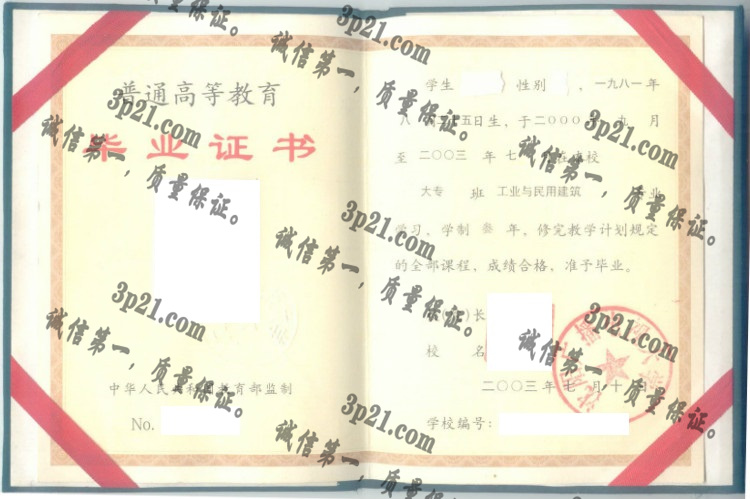 普通高等教育
毕业证书
中华人民共和国教育部监制
No.
学生 性别 ,一九八一年
八 五日生,于二〇〇〇年九月
至二〇〇三年七 在本校
大专 班 工业与民用建筑 专业
学习,学制 叁 年,修完教学计划规定
的全部课程,成绩合格,准予毕业。
长
校 名
二〇〇三年七月十 日
学校编号:
3p21.com
诚信第一,质量保证。
3p21.com
诚信第一,质量保证。
3p21.com
诚信第一,质量保证。
3p21.com
诚信第一,质量保证。
3p21.com
诚信第一,质量保证。
3p21.com
诚信第一,质量保证。
3p21.com
诚信第一,质量保证。